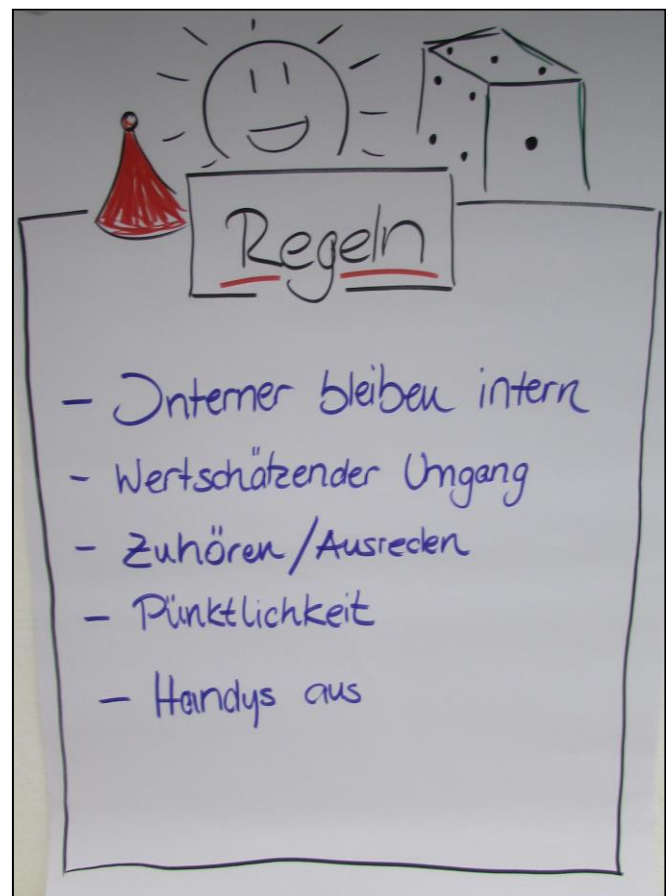 Regeln
- Interner bleiben intern
- Wertschätzender Umgang
- Zuhören/Ausreden
- Pünktlichkeit
- Handys aus